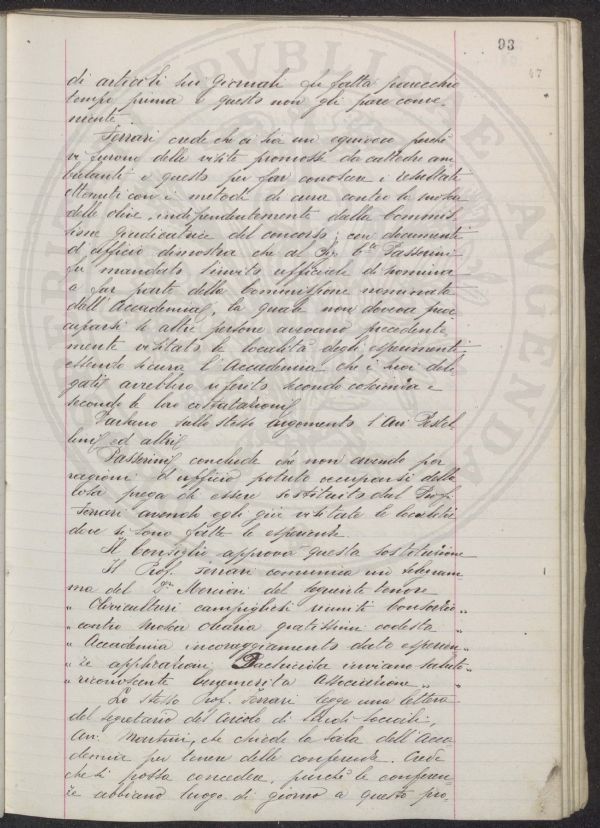 93
47
di articoli sui giornali fu fatta parecchio
tempo prima e questo non gli pare conve-
niente.
Ferrari crede che ci sia un equivoco perché
vi furono delle visite promosse da cattedre am
bulanti e questo per far conoscere i resultati
ottenuti con i metodi di cura contro la mosca
delle olive, indipendentemente dalla Commis-
sione giudicatrice del concorso; con documenti
d'ufficio dimostra che al Passerini
fu mandato l'invito ufficiale di nomina
a far parte della Commissione nominata
dall'Accademia, la quale non doveva preoc
cuparsi se altre persone avevano precedente
mente visitato le località degli esperimenti,
essendo sicura l'Accademia che i suoi dele
gati avrebbero riferito secondo coscienza e
secondo le loro constatazioni.
Parlano sullo stesso argomento l'Avv. Pestel
lini ed altri.
Passerini conclude che non avendo per
ragioni d'ufficio potuto occuparsi della
cosa prega di essere sostituito dal Prof.
Ferrari avendo egli già visitate le località
dove si sono fatte le esperienze.
Il Consiglio approva questa sostituzione
Il Prof. Ferrari comunica un telegram
ma del Sr. del seguente tenore
" Olivicultori campigliesi riuniti Consorzio "
" contro mosca olearia gratissimi codesta "
" Accademia incoraggiamento dato esperien "
" ze applicazioni Dachicida inviano saluto "
" riconoscente benemerita Associazione "
Lo stesso Prof. Ferrari legge una lettera
del segretario del Circolo di Studi Sociali,
Avv. Martini, che chiede la sala dell'Acca
demia per tenere delle conferenze. Crede
che si possa concedere, purché le conferen=
ze abbiano luogo di giorno a questo pro-